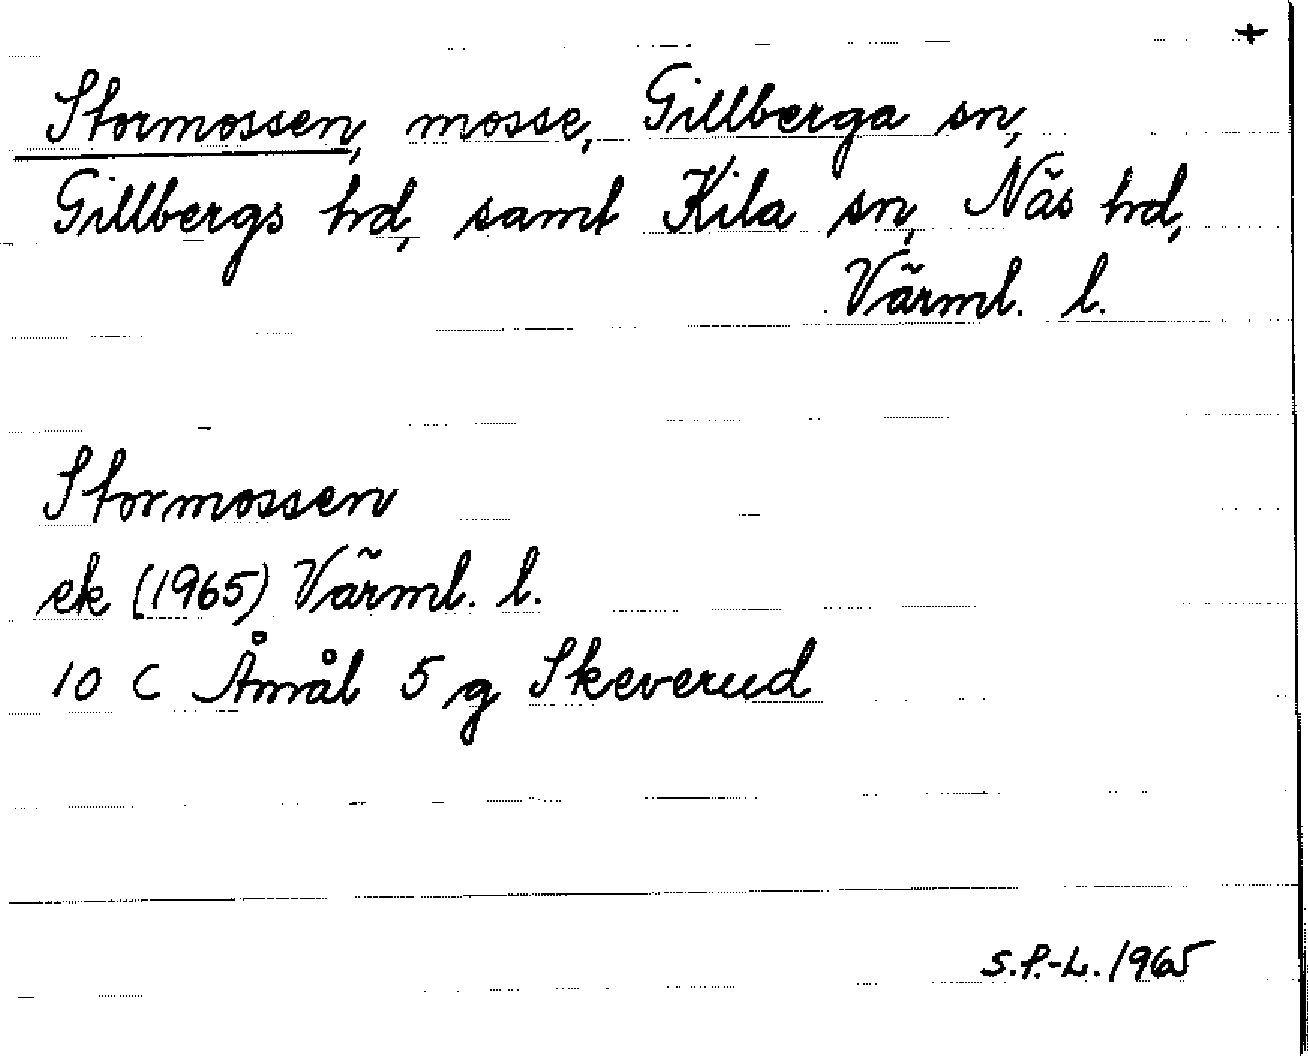 +
Stormossen, mosse, Gillberga sn,
Gillbergs hd, samt Kila sn, Näs hd,
Värml. l.
Stormossen
ek (1965) Värml. l.
10 C Åmål 5 g Skeverud
S.P.-L. 1965